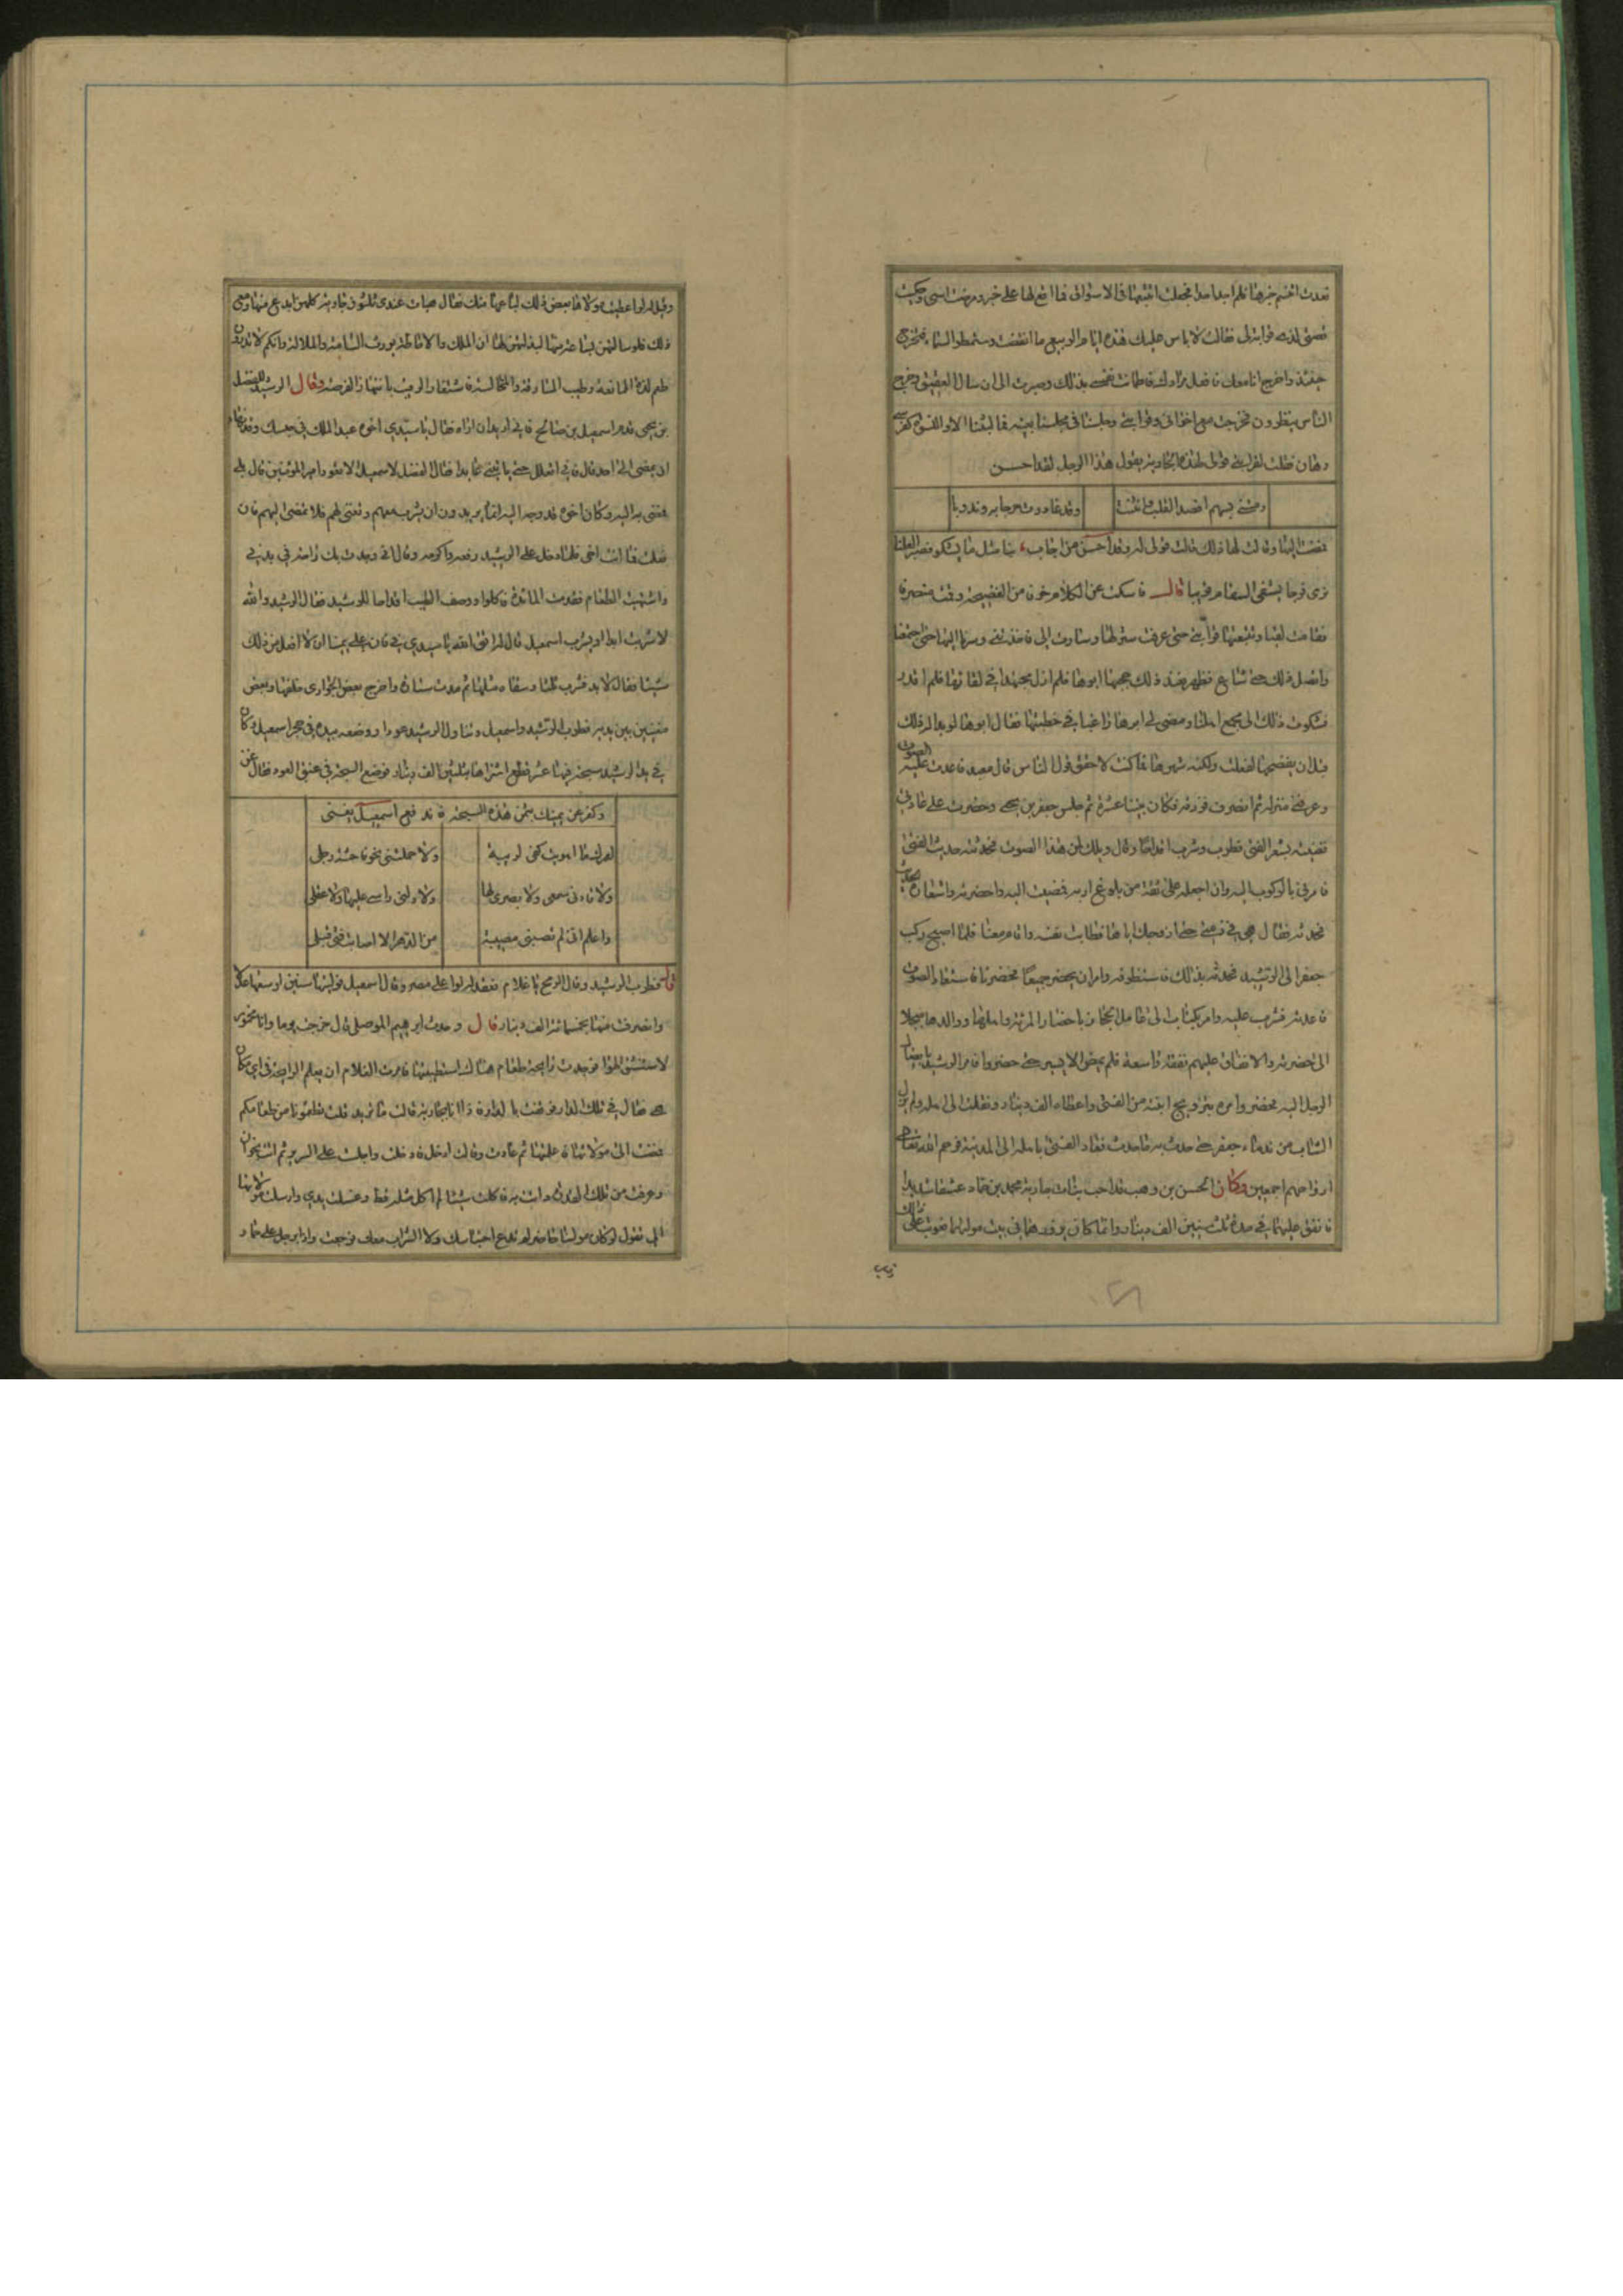 فعدت انتسم خبرها فلم اجد احدا فجعلت اتتبعها فى الاسواق فما اقع لها على خبر ومرضت اسى وحكيت
قصتى لذى قرابة لى فقالت لا باس عليك هذه ايام الربيع ما انقضت وستمطر السماء فتخرج
حينئذ واخرج انا معك فافعل مرادك فاطمانت نفسى بذلك وصبرت الى ان سال العقيق وخرج
الناس ينظرون فخرجت مع اخوانى وقرابتى وجلسنا فى مجلسنا بعينه فما لبثنا الا والنسوة كفرسى
رهان فقلت لقرابتى قولى لهذه الجارية يقول هذا الرجل لقد احسن
رمتنى بسهم اقصد القلب وانثنت
وقد غادرت جرحا به وندوبا
فمضت اليها وقالت لها ذلك قالت قولى له وقد احسن من اجاب بنا مثل ما تشكو فصبرا لعلنا
نرى فرجا يشفى السقام قريبا قال فامسكت عن الكلام خوفا من الفضيحة وقمت منصرفا
فقامت لقيامى وتتبعتها قرابتى حتى عرفت منزلها وصارت الى فاخذتنى وسرنا اليها حتى اجتمعنا
واتصل ذلك حتى شاع فظهر فعند ذلك حجبها ابوها فلم ازل مجتهدا فى لقائها فلم اقدر
فشكوت ذلك الى مجمع اهلنا ومضى الى ابوها راغبا فى خطبتها فقال ابوها لو بدا له ذلك
قبل ان يفضحها لفعلت ولكنه شهرها فما كنت لاحقق قول الناس قال معبد فاعدت عليه الصوت
وعرفنى منزله ثم انصرف فكان بيننا عشرة ثم جلس جعفر بن يحيى وحضرت على عادتى
فغنيته بشعر الفتى فطرب وشرب اقداحا وقال ويلك لمن هذا الصوت فحدثته حديث الفتى
فامرنى بالركوب اليه وان اجعله على ثقة من بلوغ اربه فمضيت اليه واحضرته واستعاده الحديث
فحدثه فقال هى فى ذمتى حتى ازوجك اياها فطابت نفسه واقام معنا فلما اصبح ركب
جعفر الى الرشيد فحدثه بذلك فاستظرفه وامر ان يحضر جميعا فحضرنا فاستعاد الصوت
فاعدته فشرب عليه وامر بكتاب الى عامل الحجاز باحضار المرئة واهلها ووالدها مبجلا
الى حضرته والانفاق عليهم نفقة واسعة فلم يمض الا يسير حتى حضروا فامر الرشيد بايصال
الرجل اليه فحضر وامره بتزويج ابنته من الفتى واعطاه الف دينار ونقلت الى اهله ولم يزل
الشاب من ندماء جعفر حتى حدث به ما حدث فعاد الفتى باهله الى المدينة فرحم الله تعالى
ارواحهم اجمعين وكان الحسن بن وهب قد احب بنات جارية محمد بن حماد عشقا شديدا
فانفق عليها فى مدة ثلث سنين الف دينار وانما كان يزورها فى بيت مولاها فعوتب على ذلك
وقيل له لو اعطيت مولاها بعض ذلك لباعها منك فقال هيهات عندى ثلثون جارية كلهن ابدع منها ومتى
ذلك فلو سالتهن
طعم لذة الممانعة وطيب المسارقة والمخالسة وقال الرشيد للفضل
بن يحيى قدم اسمعيل بن صالح فانى اريد ان اراه فقال يا سيدى اخوه عبد الملك فى حبسك وقد نهاه
ان يمضى الى احد قال فانى اتعلل حتى ياتينى عائدا فقال الفضل لاسمعيل الا تعود امير المؤمنين قال بلى
فمضى به اليه وكان اخوه قد وجه اليه انما يريدون ان يشرب معهم وتغنى لهم فلا تمضى اليهم فان
فعلت فما انت اخى فلما دخل على الرشيد رفعه واكرمه وقال انى وجدت بك راحة فى بدنى
واشتهيت الطعام فقدمت المائدة فاكلوا ووصف الطبيب اقداحا للرشيد فقال الرشيد والله
لا شربت ابدا او يشرب اسمعيل قال له اتق الله يا سيدى فى فان على يمينا ان لا افعل من ذلك
شيئا فقال لا بد فشرب ثلثا وسقاه مثلها ثم مدت ستارة واخرج بعض الجوارى خلفها وبعض
مغنيين بين يديه فطرب الرشيد واسمعيل وتناول الرشيد عودا ووضعه بيده فى حجر اسمعيل وكان
فى يد الرشيد سبحة فيها عشر قطع اشتراها بثلثين الف دينار فوضع السبحة فى عنق العود فقال غن
وكفر عن يمينك بثمن هذه السبحة فاندفع اسمعيل يغنى
لعمرك ما اهويت كفى لريبة
ولا حملتنى نحو فاحشة رجلى
ولا قادنى سمعى ولا بصرى لها
ولا دلنى راسى عليها ولا عقلى
واعلم انى لم تصبنى مصيبة
من الدهر الا اصابت فتى قبلى
قال فطرب الرشيد وقال الرمح يا غلام فعقد له لواء على مصر وقال اسمعيل فوليتها سنتين اوسعتها عدلا
وانصرفت منها بخمسمائة الف دينار قال وحدث ابرهيم الموصلى قال خرجت يوما وانا مخمور
لاستنشق الهواء فوجدت رايحة طعام هناك استطيبتها فامرت الغلام ان يعلم الرايحة فى اى مكان
هى فقال فى تلك الدار فوقفت بالدار فاذا انا بجارية قالت ما تريد قلت تطعمونا من طعامكم
فمضت الى مولاتها عليها ثم عادت وقالت ادخل فدخلت وجلست على السرير ثم اتت بخوان
وغرفت من تلك القدر واتت به فاكلت شيئا لم اكل مثله قط وغسلت يدى وارسلت مولاتها
الى تقول لو كان مولينا حاضرا لم تدع احتباسك ولا الشراب معك فرجعت واذا برجل على حمار
فرسى